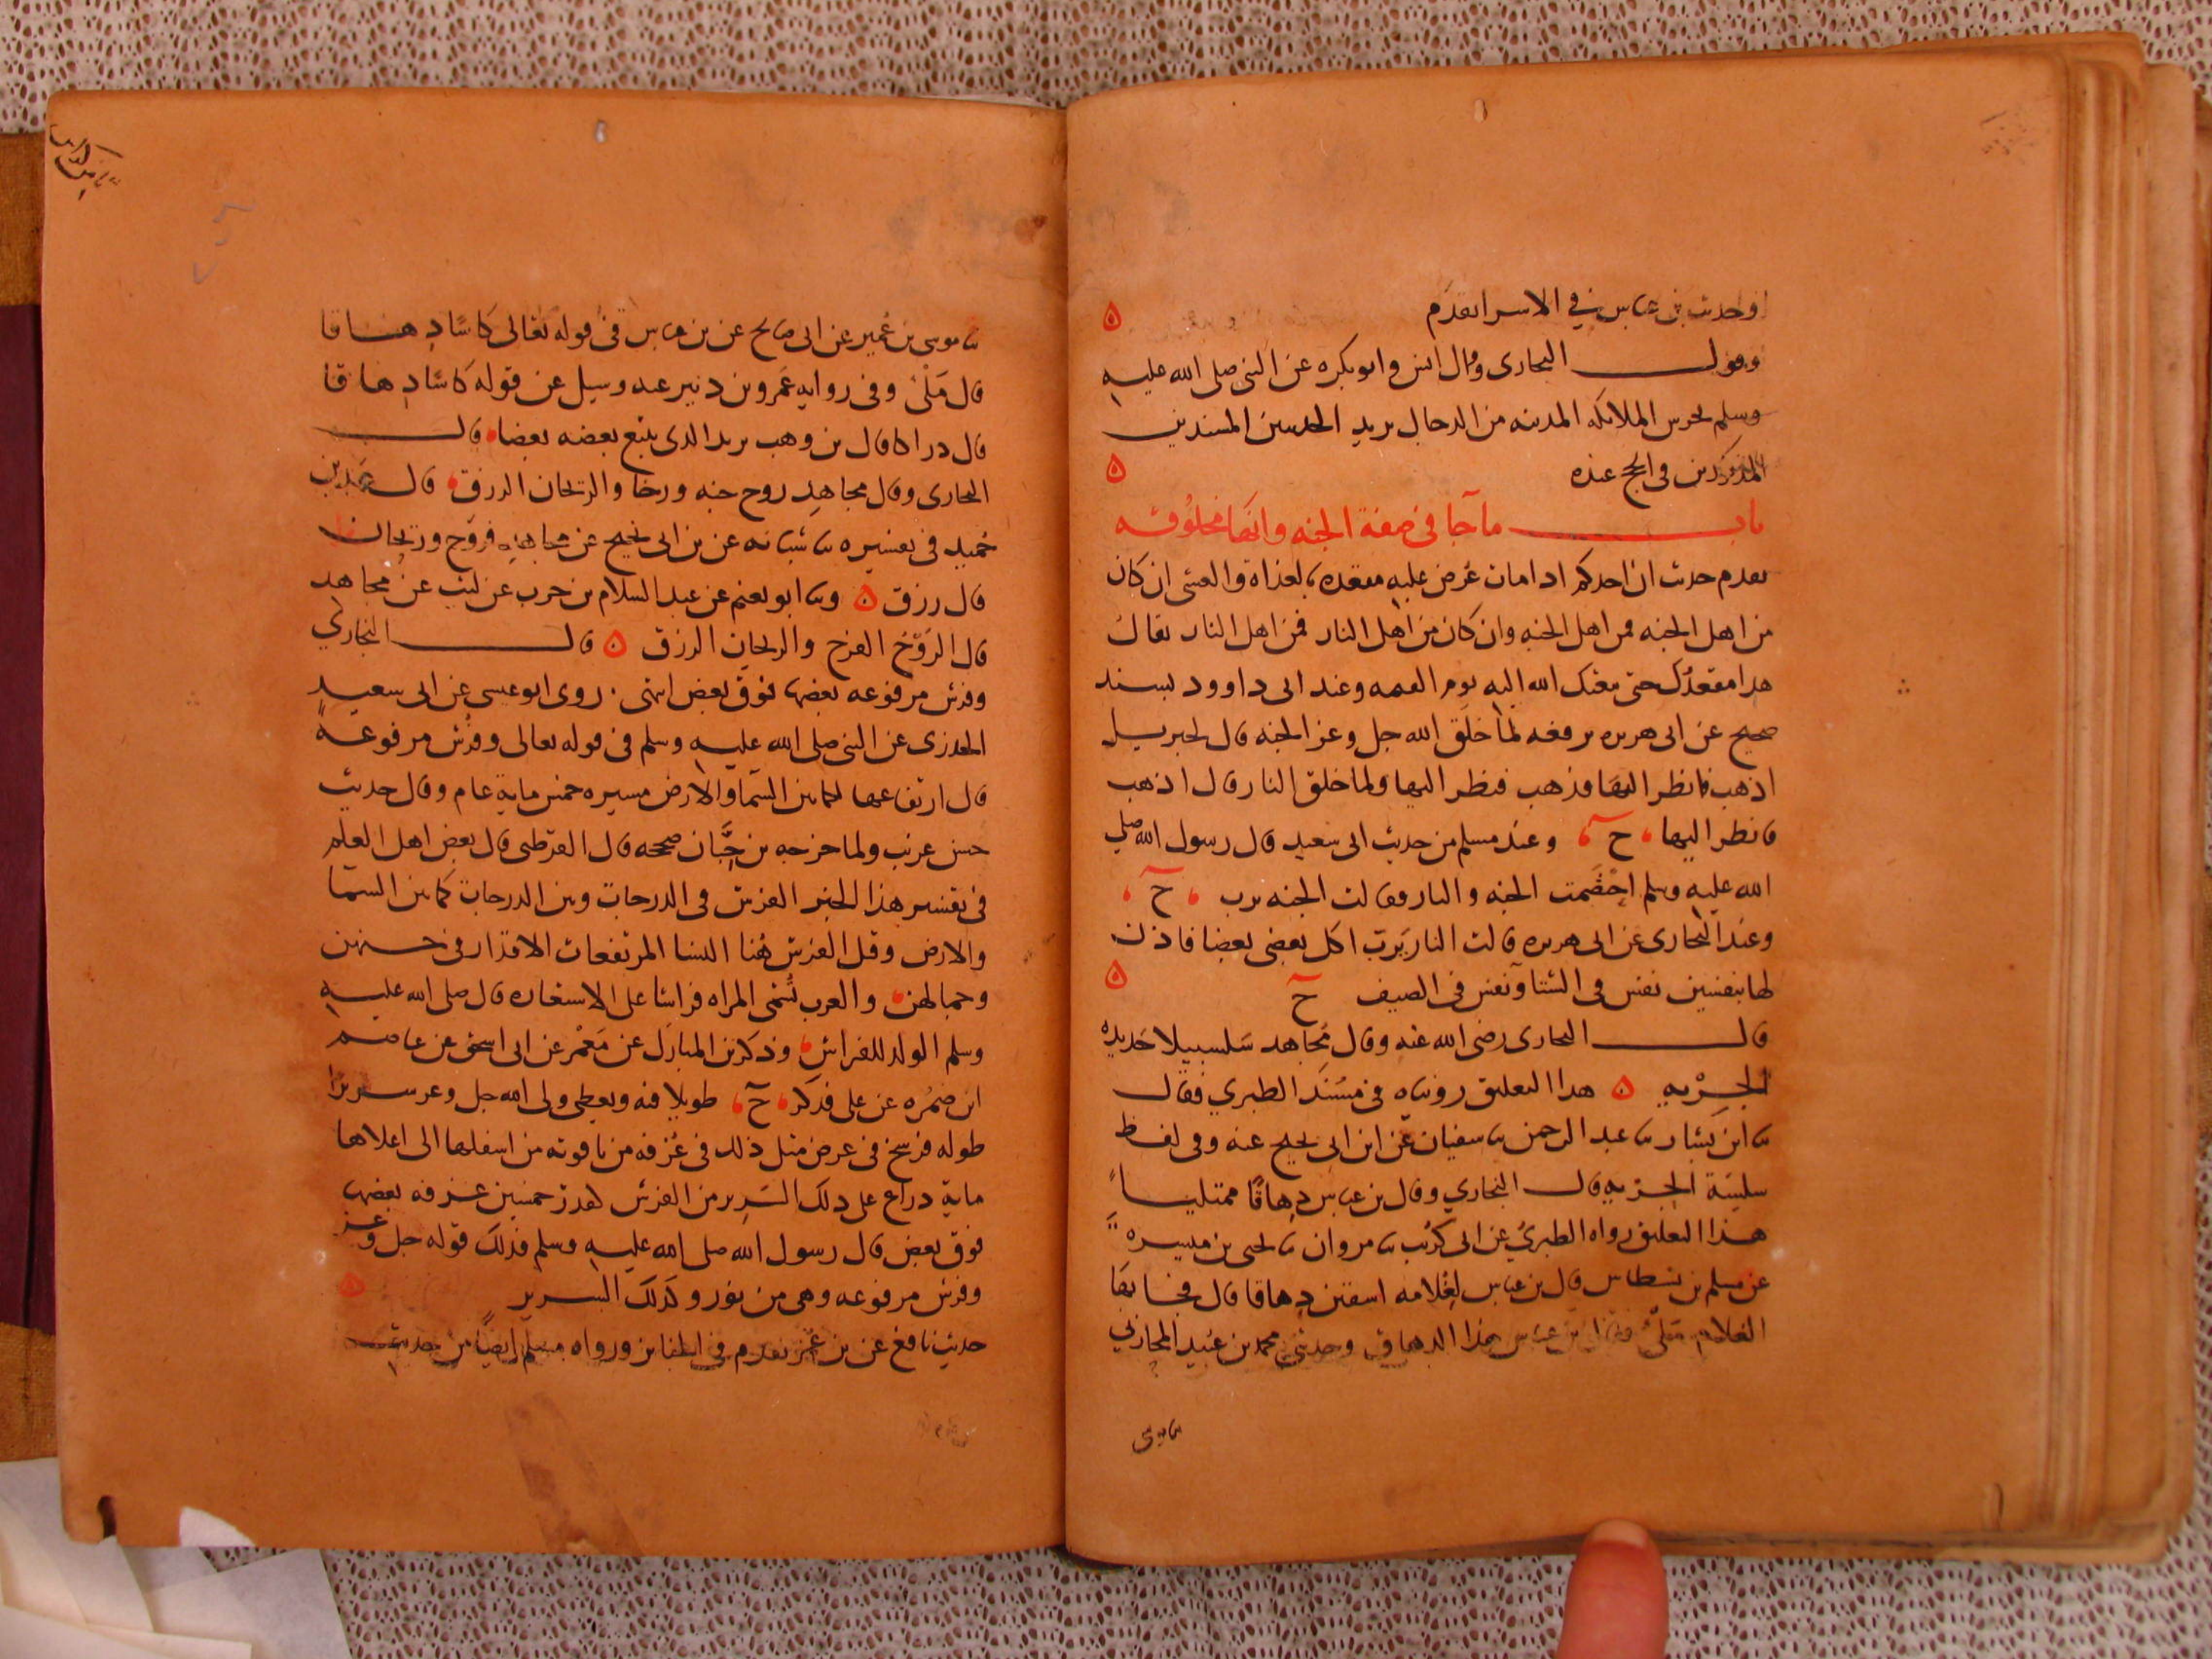 وحديث بن عباس في الاسرا تقدم ه
وقول البخاري وقال انس وابو بكره عن النبي صلى الله عليه
وسلم تحرس الملائكه المدينه من الدجال يريد الحديثين المسندين
المذكورين في الحج عنده ه
باب ما جا في صفة الجنه وانها مخلوقه
تقدم حديث ان احدكم اذا مات عرض عليه مقعده بالغداة والعشي ان كان
من اهل الجنه فمن اهل الجنه وان كان من اهل النار فمن اهل النار يقال
هذا مقعدك حتى يبعثك الله اليه يوم القيمه وعند ابي داوود بسند
صحيح عن ابي هريره يرفعه لما خلق الله جل وعز الجنه قال لجبريل
اذهب فانظر اليها فذهب فنظر اليها ولما خلق النار قال اذهب
فانظر اليها ح وعند مسلم من حديث ابي سعيد قال رسول الله صلى
الله عليه وسلم اختصمت الجنه والنار فقالت الجنه يرب ح
وعند البخاري عن ابي هريره قالت النار يرب اكل بعضي بعضا فاذن
لها بنفسين نفس في الشتا ونفس في الصيف ح ه
قال البخاري رضي الله عنه وقال مجاهد سلسبيلا حديده
الجريه ه هذا التعليق رويناه في مسند الطبري فقال
ثنا ابن بشار ثنا عبد الرحمن ثنا سفيان عن ابن ابي نجيح عنه وفي لفظ
سلسة الجريه قال البخاري وقال بن عباس دهاقا ممتليا
هذا التعليق رواه الطبري عن ابي كريب ثنا مروان ثنا يحيى بن ميسره
عن مسلم بن نسطاس قال بن عباس لغلامه اسقني دهاقا قال فجا بها
الغلام ملئ فقال بن عباس هذا الدهاق وحدثني محمد بن عبيد المحاربي
ثنا موسى
ثنا موسى بن عمير عن ابي صالح عن بن عباس في قوله تعالى كاسا دهاقا
قال ملئ وفي روايه عمرو بن دينر عنه وسيل عن قوله كاسا دهاقا
قال دراكا قال بن وهب يريد الذي يتبع بعضه بعضا قال
البخاري وقال مجاهد روح جنه ورخا والريحان الرزق قال عبد بن
حميد في تفسيره ثنا شبابه عن بن ابي نجيح عن مجاهد فروح وريحان
قال رزق ه وثنا ابو نعيم عن عبد السلام بن حرب عن ليث عن مجاهد
قال الروح الفرح والريحان الرزق ه قال البخاري
وفرش مرفوعه بعضها فوق بعض انتهى روى ابو عيسى عن ابي سعيد
الخدري عن النبي صلى الله عليه وسلم في قوله تعالى وفرش مرفوعة
قال ارتفاعها لكما بين السما والارض مسيره خمس ماية عام وقال حديث
حسن غريب ولما خرجه بن حبان صححه قال القرطبي قال بعض اهل العلم
في تفسير هذا الخبر الفرش في الدرجات وبين الدرجات كما بين السما
والارض وقيل الفرش هنا النسا المرتفعات الاقدار في حسنهن
وجمالهن والعرب تسمي المراه فراشا على الاستعاره قال صلى الله عليه
وسلم الولد للفراش وذكر بن المبارك عن معمر عن ابي اسحق عن عاصم
ابن ضمره عن علي فذكر ح طويلا فيه ويعطى ولي الله جل وعز سريرا
طوله فرسخ في عرض مثل ذلك في غرفه من ياقوته من اسفلها الى اعلاها
ماية دراع على ذلك السرير من الفرش كقدر خمسين غرفه بعضها
فوق بعض قال رسول الله صلى الله عليه وسلم فذلك قوله جل وعز
وفرش مرفوعه وهي من نور وكذلك السرير ه
حديث نافع عن بن عمر تقدم في الجنايز ورواه مسلم ايضا من حديث